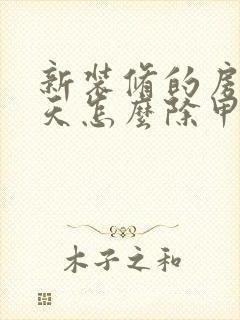 新装修的房
天怎麼除甲
木子之和